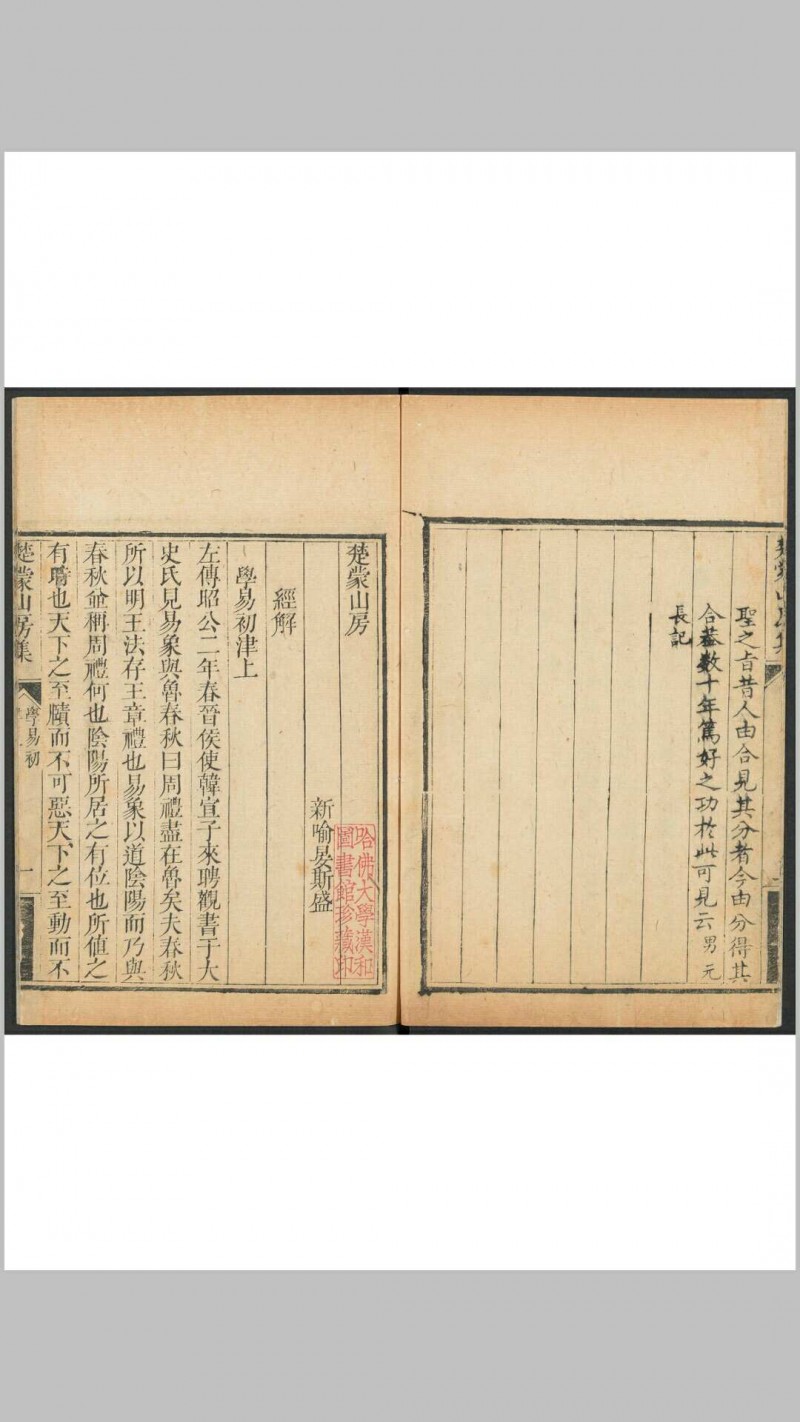 聖之旨昔人由合見其分者今由分得其
合葢數十年篤好之功於此可見云男元
長記
楚蒙山房
新喻晏斯盛
經解
學易初津上
左傳昭公二年春晉侯使韓宣子來聘觀書于大
史氏見易象與魯春秋曰周禮盡在魯矣夫春秋
所以明王法存王章禮也易象以道陰陽而乃與
春秋並稱周禮何也陰陽所居之有位也所値之
有時也天下之至賾而不可惡天下之至動而不
楚蒙山房集
學易初
一
哈佛大學漢和
圖書館珍藏印